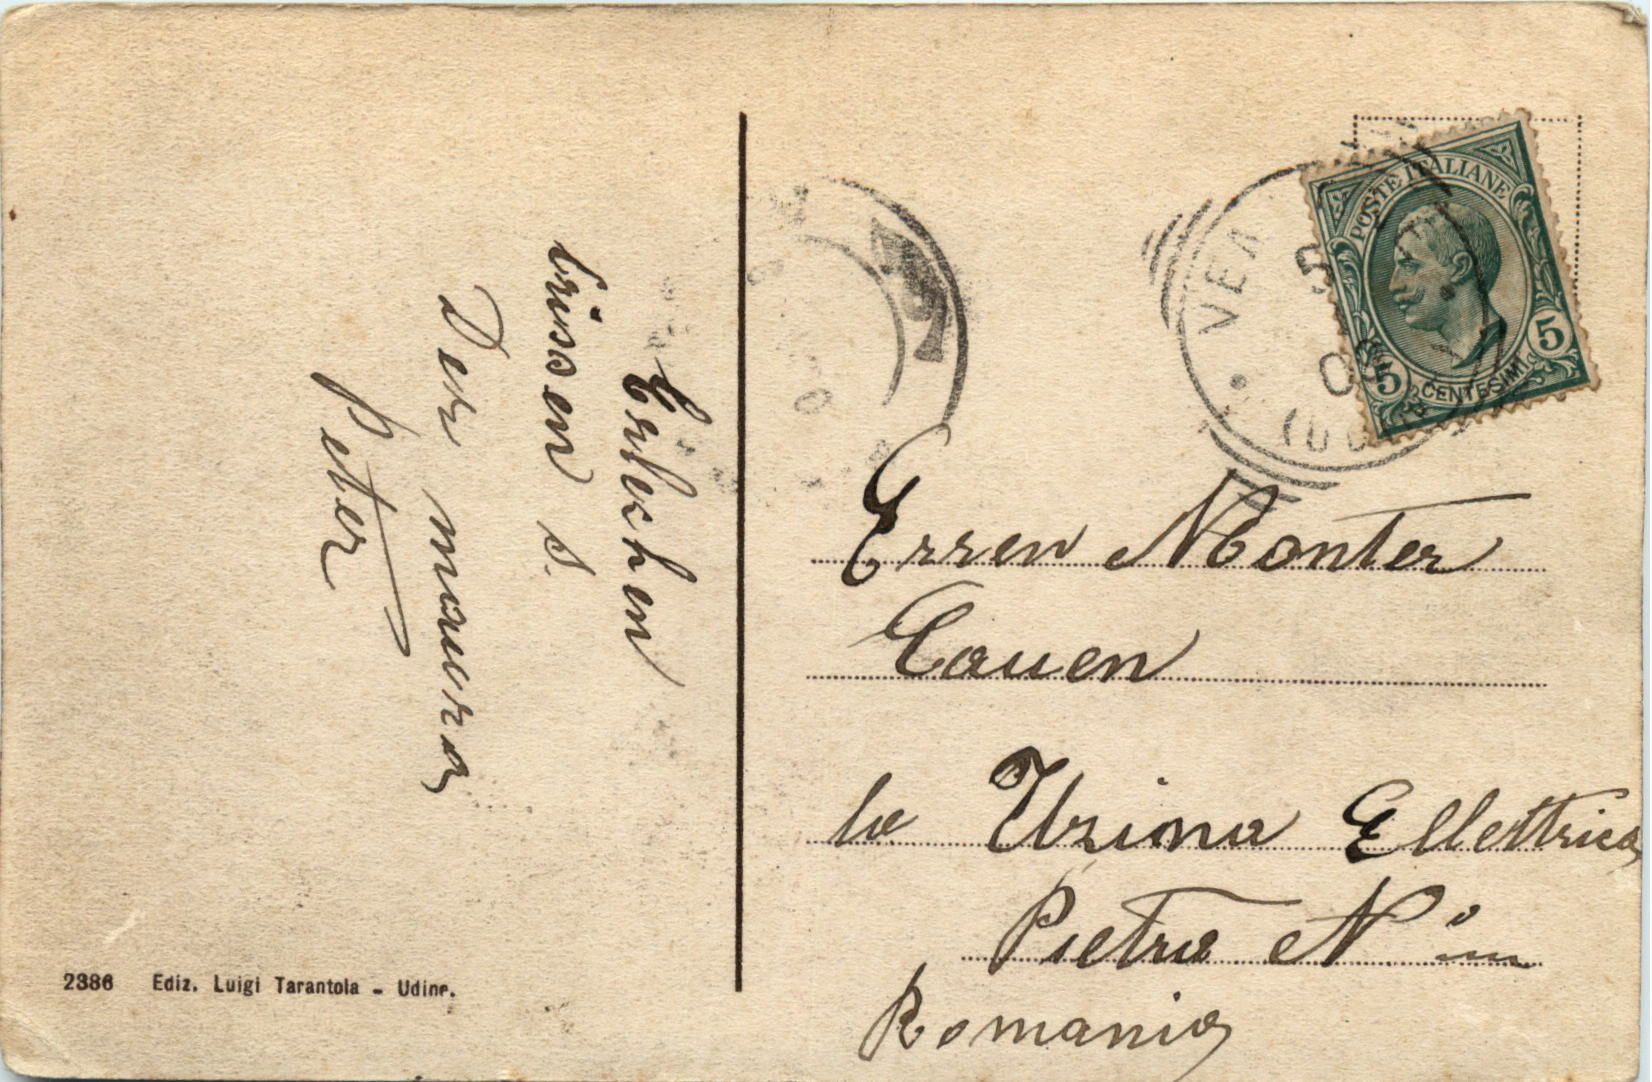 Eulschen
Grissen s.
Der maurer
Peter
2386 Ediz. Luigi Tarantola - Udine.
POSTE ITALIANE
5
5
CENTESIMI
Erren Monter
Cauen
la Uzina Ellettrica
Pietra N in
Romania